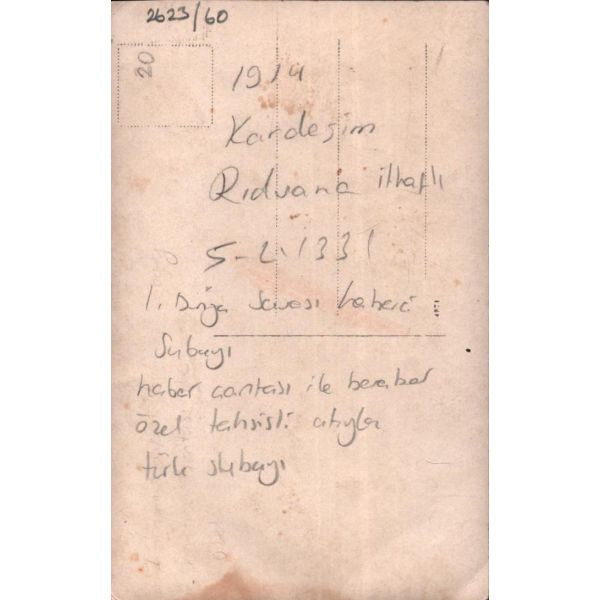 2623/60
20
1914
Kardeşim
Rıdvana ithaflı
5-2-1331
1. Dünya Savası haberci
Subayı
haber çantası ile beraber
özel tahsisli atıyla
türk subayı